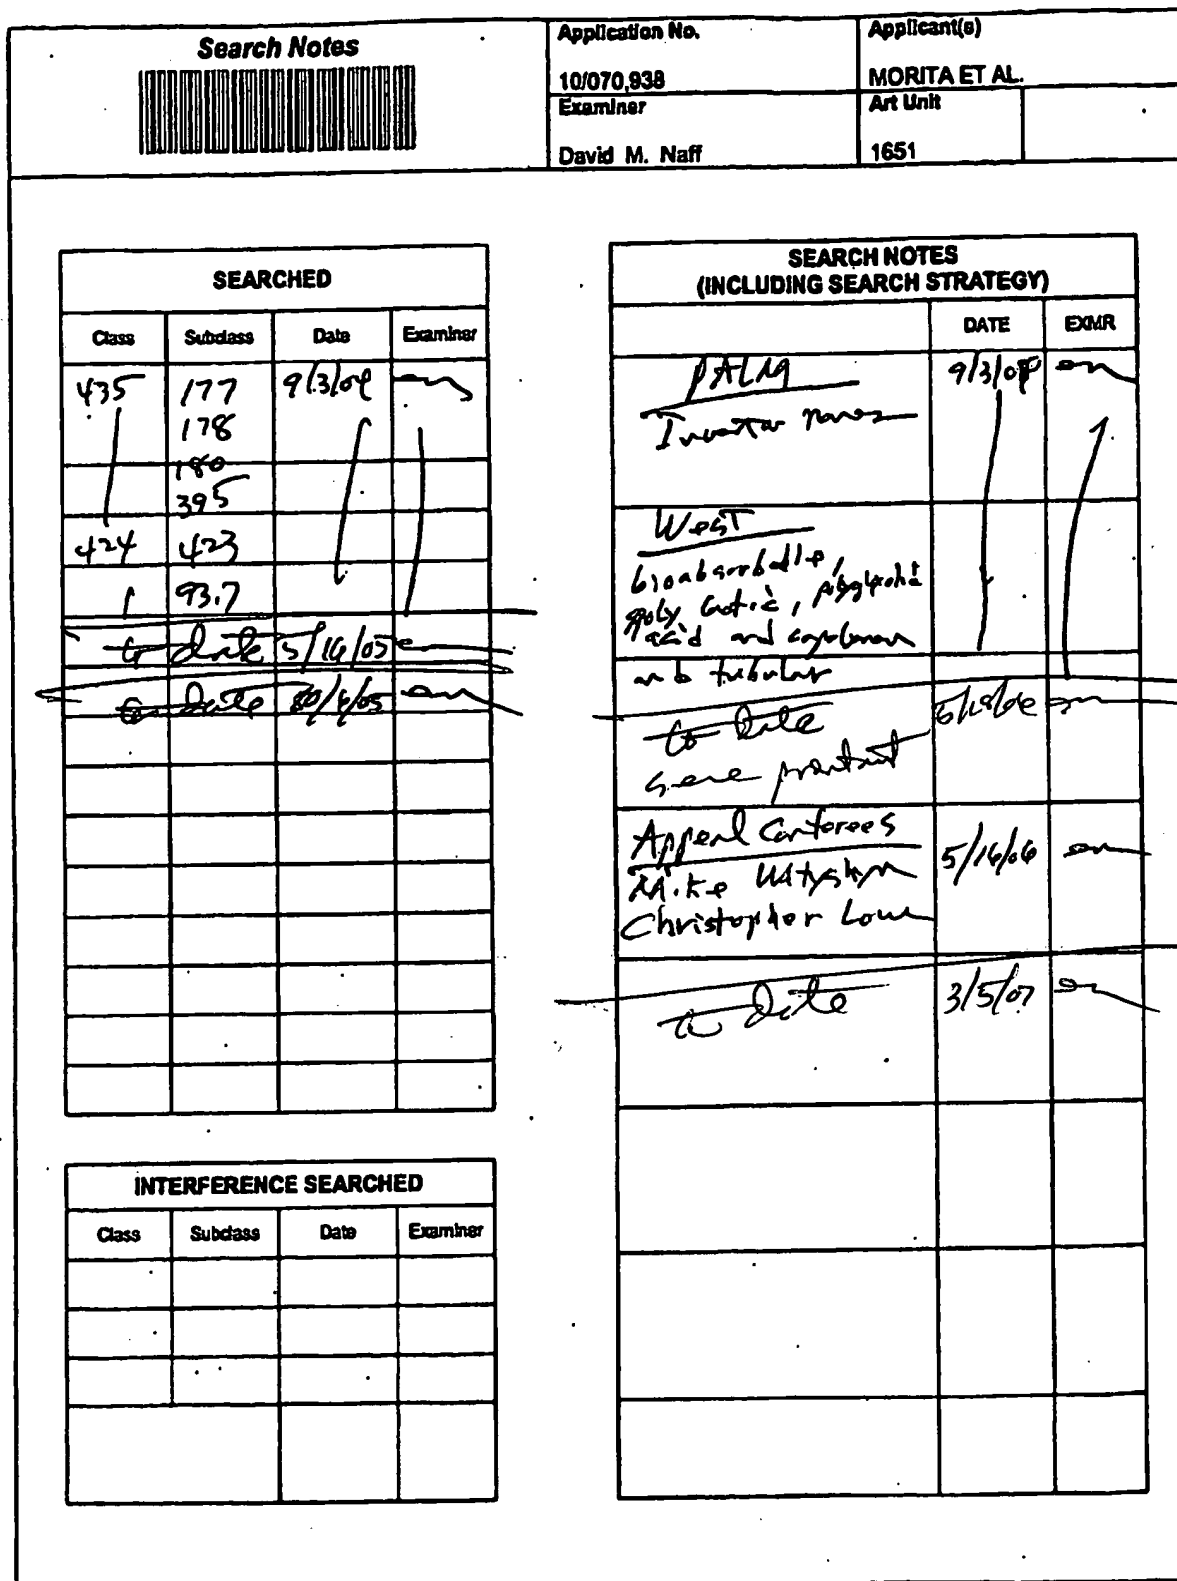 Search Notes
Application No.
10/070,938
Applicant(s)
MORITA ET AL.
Examiner
David M. Naff
Art Unit
1651
SEARCHED
Class Subclass Date Examiner
435 177 9/3/04
178
180
395
424 423
93.7
to date 5/16/05
to date
INTERFERENCE SEARCHED
Class Subclass Date Examiner
SEARCH NOTES
(INCLUDING SEARCH STRATEGY)
DATE EXMR
PALM 9/3/04
Inventor names
West
bioabsorbable,
poly lactic, polyglycolic
acid and
and tubular
to date
Appeal Conferees 5/16/06
Mike
Christopher Low
to date 3/5/07